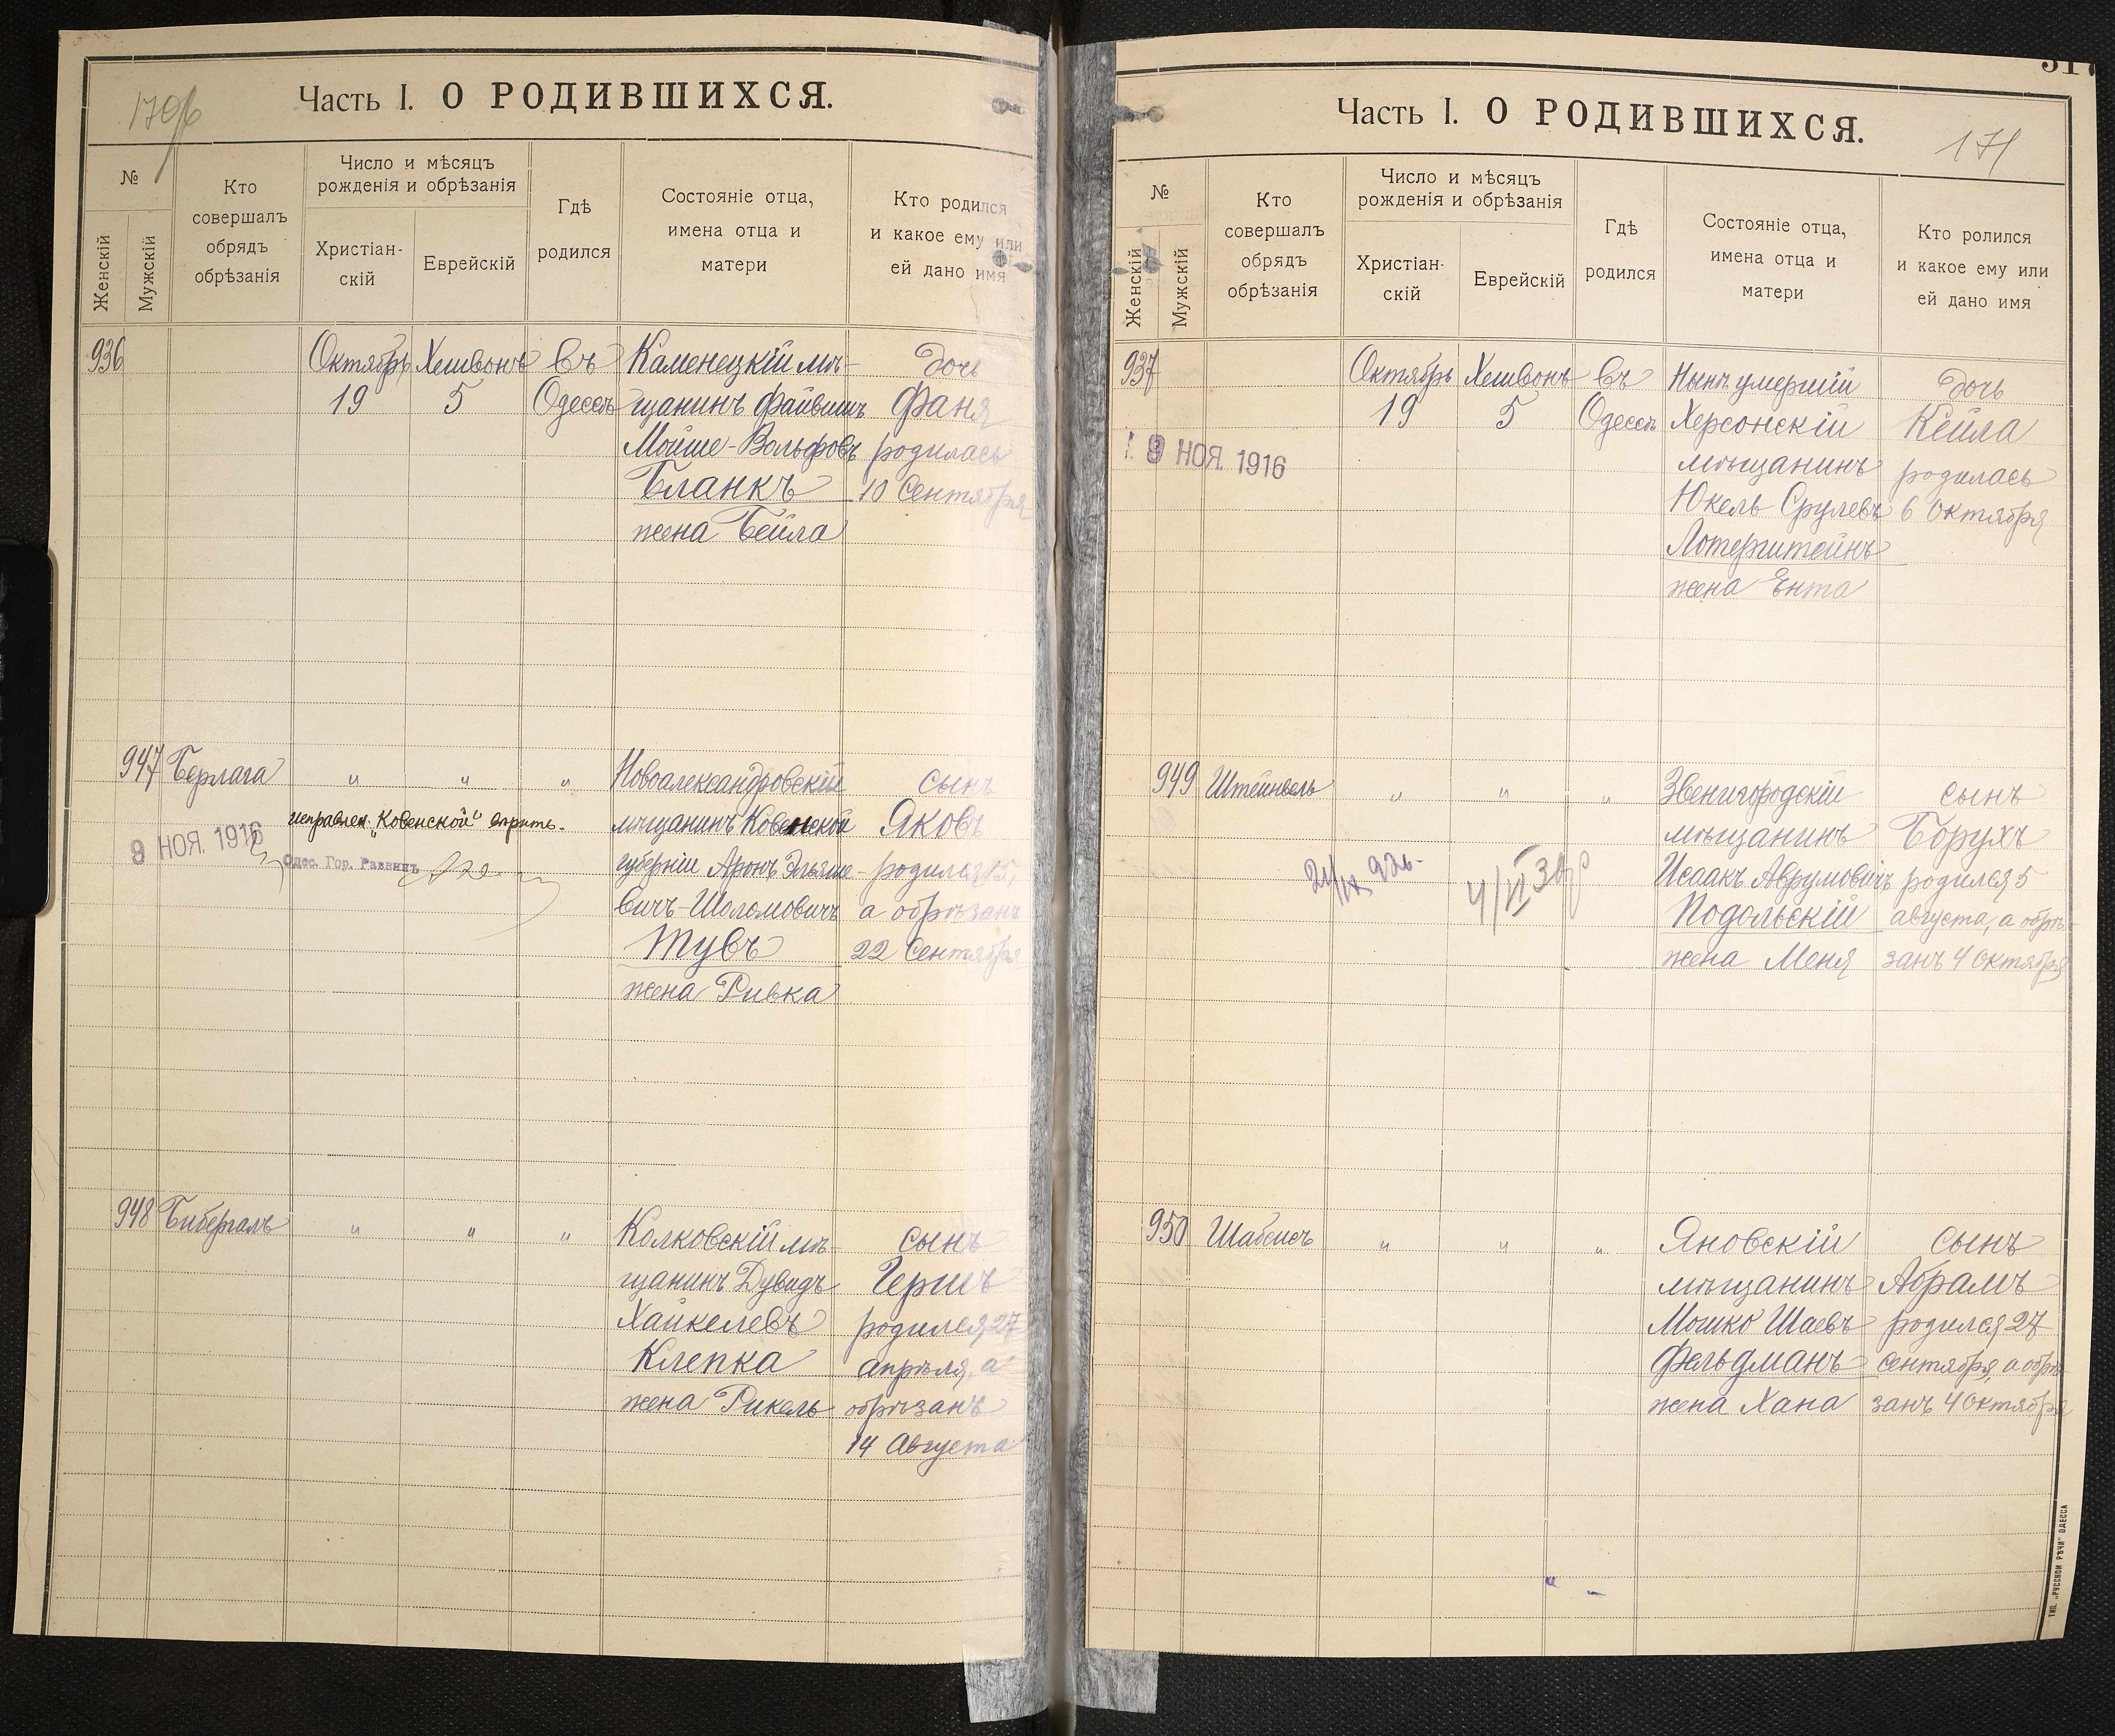 Часть I. О РОДИВШИХСЯ.
№
Женскій
Мужскій
Кто
совершалъ
обрядъ
обрѣзанія
Число и мѣсяцъ
рожденія и обрѣзанія
Христіан-
скій
Еврейскій
Гдѣ
родился
Состояніе отца,
имена отца и
матери
Кто родился
и какое ему или
ей дано имя
936
Октябрь
19
Хешвонъ
5
Въ
Одессѣ
Каменецкій мѣ-
щанинъ Файвишъ
Мойше-Вольфовъ
Бланкъ
жена Бейла
дочь
Фаня
родилась
10 Сентября
947
Берлага
"
"
"
Новоалександровскій
мѣщанинъ Ковенской
губерніи Аронъ Эльяше-
вичъ-Шоломовичъ
Тувъ
жена Ривка
сынъ
Яковъ
родился 15,
а обрѣзанъ
22 Сентября
исправлен. „Ковенской"
9 НОЯ. 1916
Одес. Гор. Раввинъ
948
Бибергалъ
"
"
"
Колковскій мѣ-
щанинъ Дувидъ
Хайкелевъ
Клепка
жена Рикель
сынъ
Гершъ
родился 27
апрѣля, а
обрѣзанъ
14 Августа
Часть I. О РОДИВШИХСЯ.
171
№
Женскій
Мужскій
Кто
совершалъ
обрядъ
обрѣзанія
Число и мѣсяцъ
рожденія и обрѣзанія
Христіан-
скій
Еврейскій
Гдѣ
родился
Состояніе отца,
имена отца и
матери
Кто ролился
и какое ему или
ей дано имя
937
9 НОЯ. 1916
Октябрь
19
Хешвонъ
5
Въ
Одессѣ
Нынѣ умершій
Херсонскій
мѣщанинъ
Юкель Срулевъ
Лотерштейнъ
жена Ента
дочь
Кейла
родилась
6 Октября
949
Штейнвель
"
"
"
Звенигородскій
мѣщанинъ
Исаакъ Аврумовичъ
Подольскій
жена Меня
сынъ
Борухъ
родился 5
августа, а обрѣ-
занъ 4 октября
950
Шабсисъ
"
"
"
Яновскій
мѣщанинъ
Мошко Шаевъ
Фельдманъ
жена Хана
сынъ
Абрамъ
родился 27
сентября, а обрѣ-
занъ 4 Октября
ТИП. „РУССКОЙ РѢЧИ" ОДЕССА